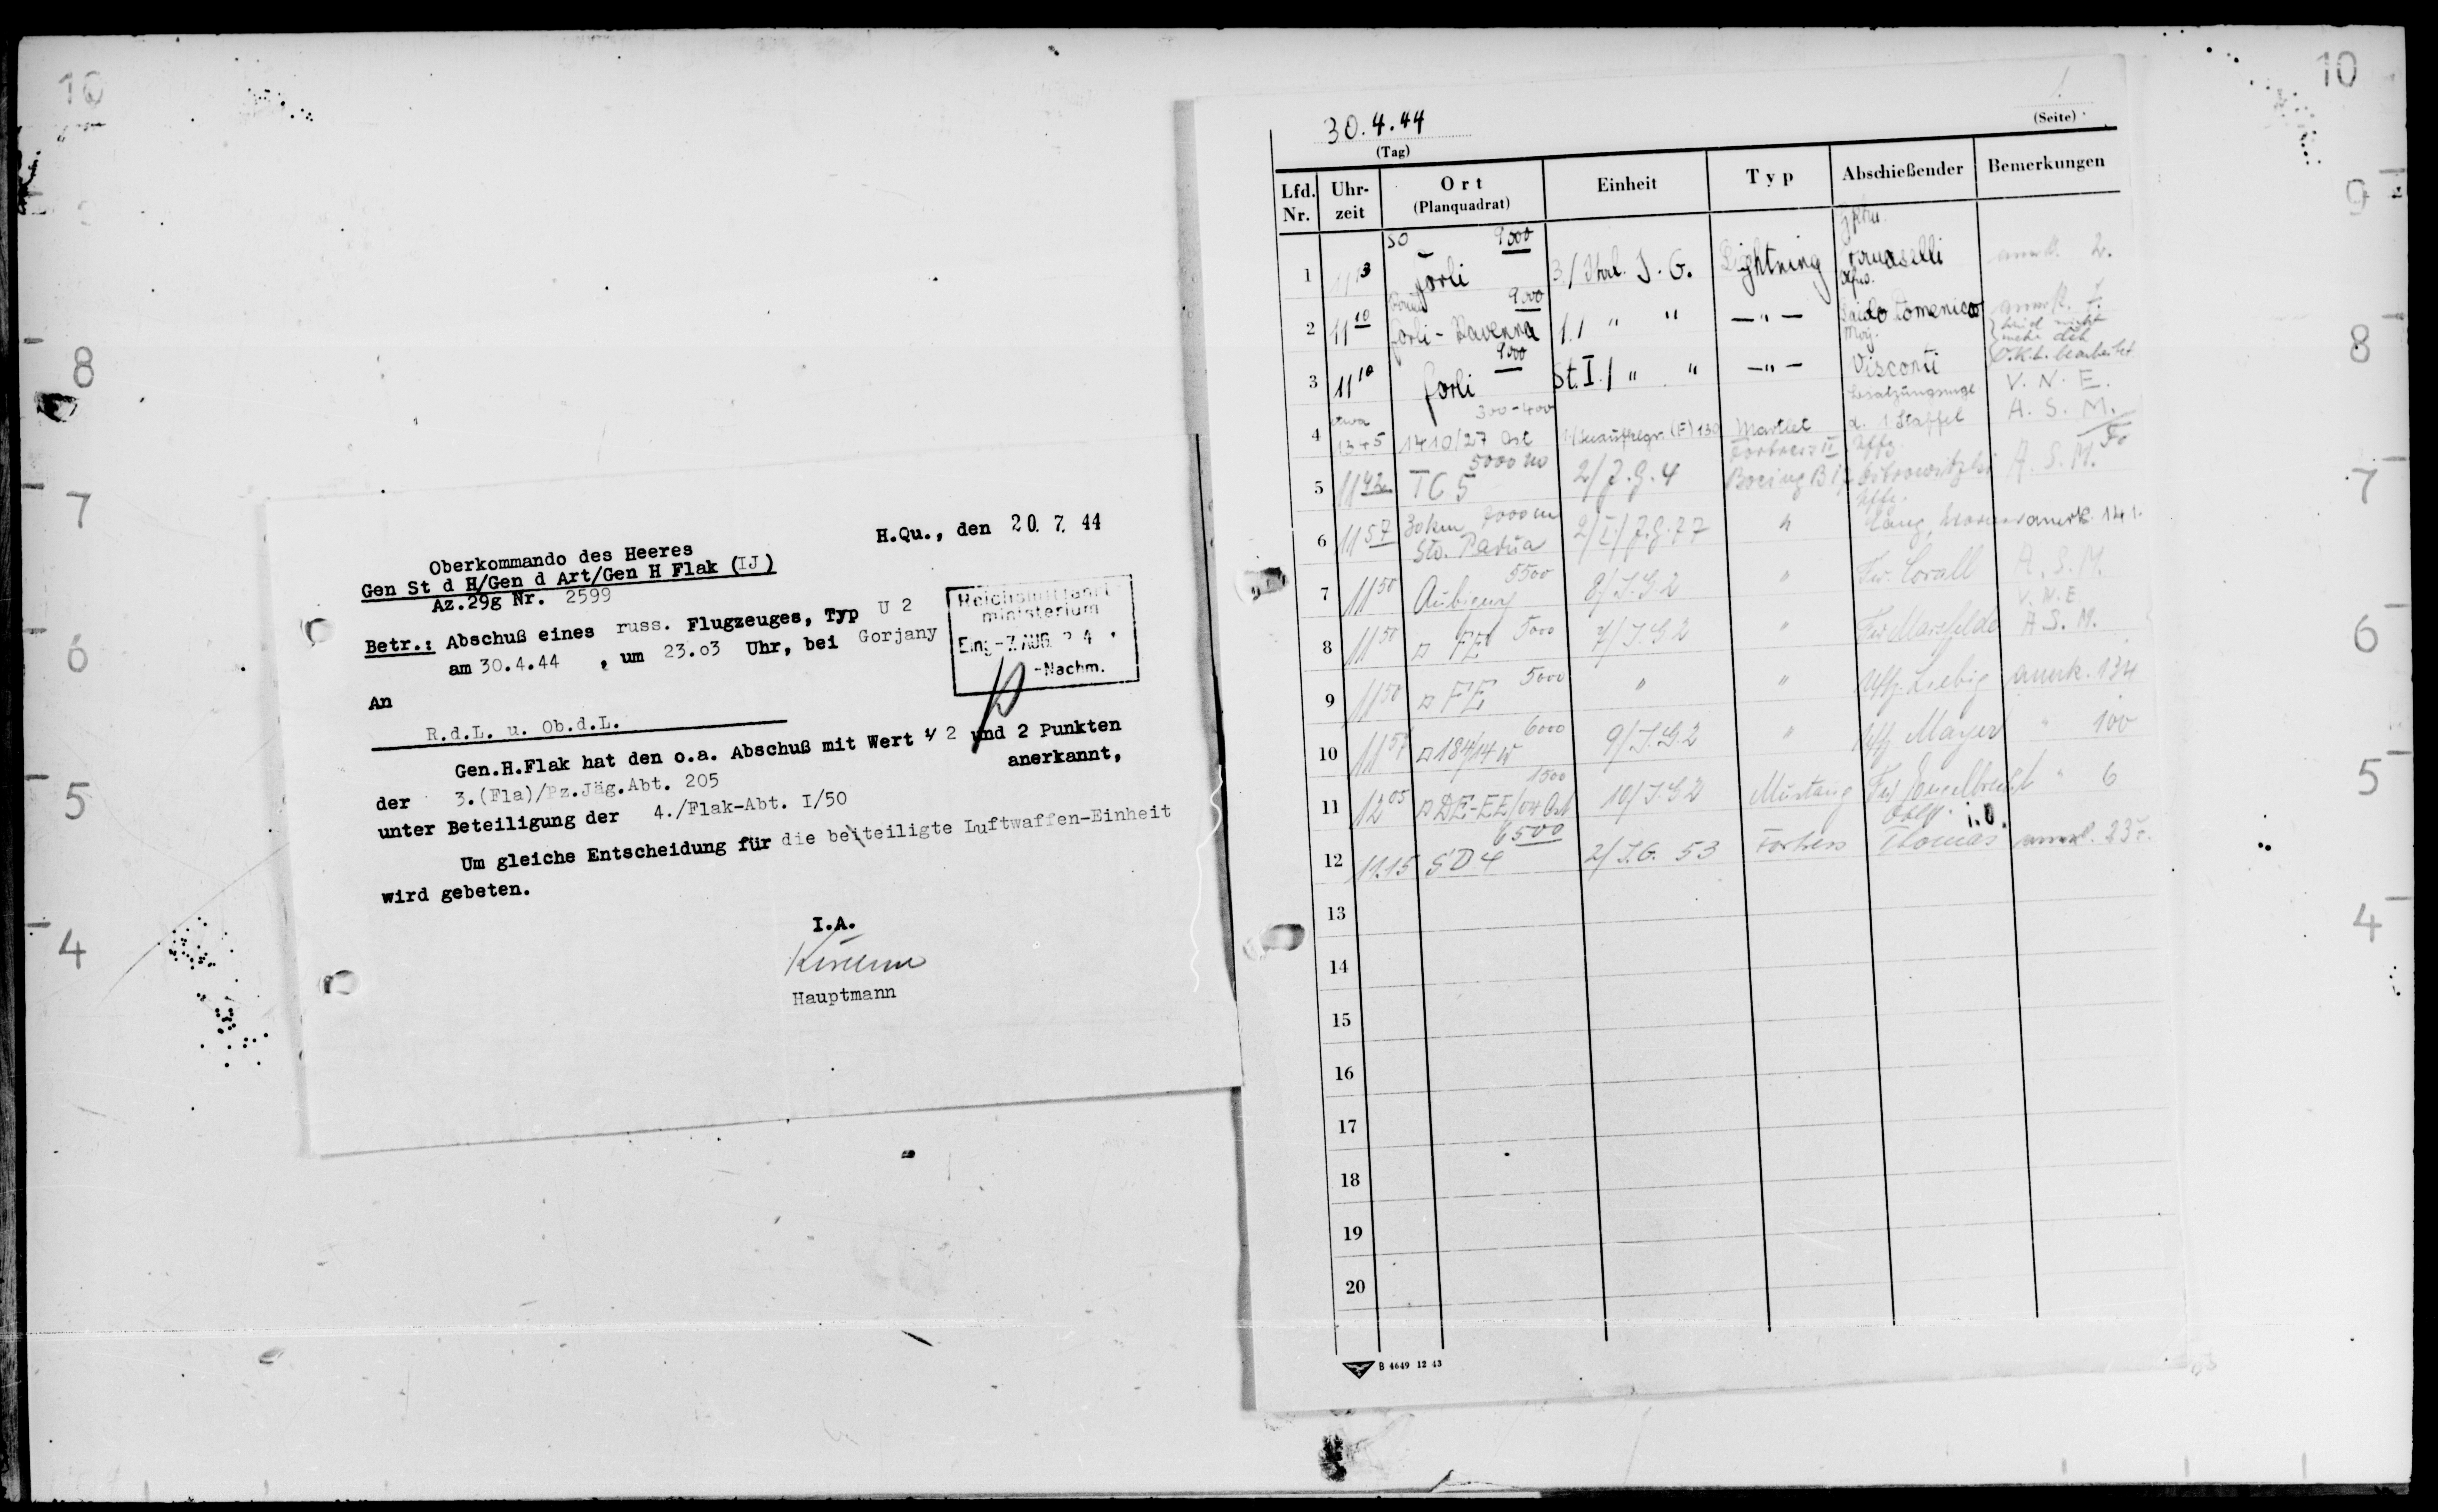 10
8
7
6
5
4
H.Qu., den 20. 7. 44
Oberkommando des Heeres
Gen St d H/Gen d Art/Gen H Flak (IJ)
Az.29g Nr. 2599
Betr.: Abschuß eines russ. Flugzeuges, Typ U 2
am 30.4.44 , um 23.03 Uhr, bei Gorjany
Reichsluftfahrt-
ministerium
Eing -7. AUG.
-Nachm.
An
R.d.L. u. Ob.d.L.
Gen.H.Flak hat den o.a. Abschuß mit Wert 1/2 und 2 Punkten
anerkannt,
der 3.(Fla)/Pz.Jäg.Abt. 205
unter Beteiligung der 4./Flak-Abt. I/50
Um gleiche Entscheidung für die beteiligte Luftwaffen-Einheit
wird gebeten.
I.A.
Hauptmann
30.4.44
(Tag)
(Seite)
Lfd. Nr. Uhr-zeit Ort (Planquadrat) Einheit Typ Abschießender Bemerkungen
1 11 13 SO 9000 Forli 3./Ital. J.G. Lightning anerk. 2.
2 11 10 9000 Forli-Ravenna 1./ " " -"- anerk. 1.
3 11 10 9000 Forli St.I./ " " -"- Maj. Visconti V.N.E.
4 etwa 1345 300-400 1410/27 Ost (F) 130 Martlet d. 1 Staffel A.S.M.
5 11 42 5000 TC 5 2/J.G.4 Fortress II Boeing B 17 Uffz. A.S.M.
6 11 57 30 km 7000 m Padua 2/I/J.G.77 " Uffz. Lang, anerk. 141.
7 11 50 5500 Aubigny 8/J.G 2 " Fw. Corall A.S.M.
8 11 50 5000 FE 7/J.G 2 " Fw V.N.E. A.S.M.
9 11 50 5000 FE " " Uffz. Liebig anerk. 134
10 11 57 6000 184/14 W 9/J.G.2 " Uffz Mayer " 100
11 12 05 1500 DE-EE/04 Ost 10/J.G 2 Mustang Fw Engelbrecht " 6
12 11.15 6500 SD 4 2/J.G. 53 Fortress Thomas i.O. anerk. 23
13
14
15
16
17
18
19
20
B 4649 12 43
10
9
8
7
6
5
4